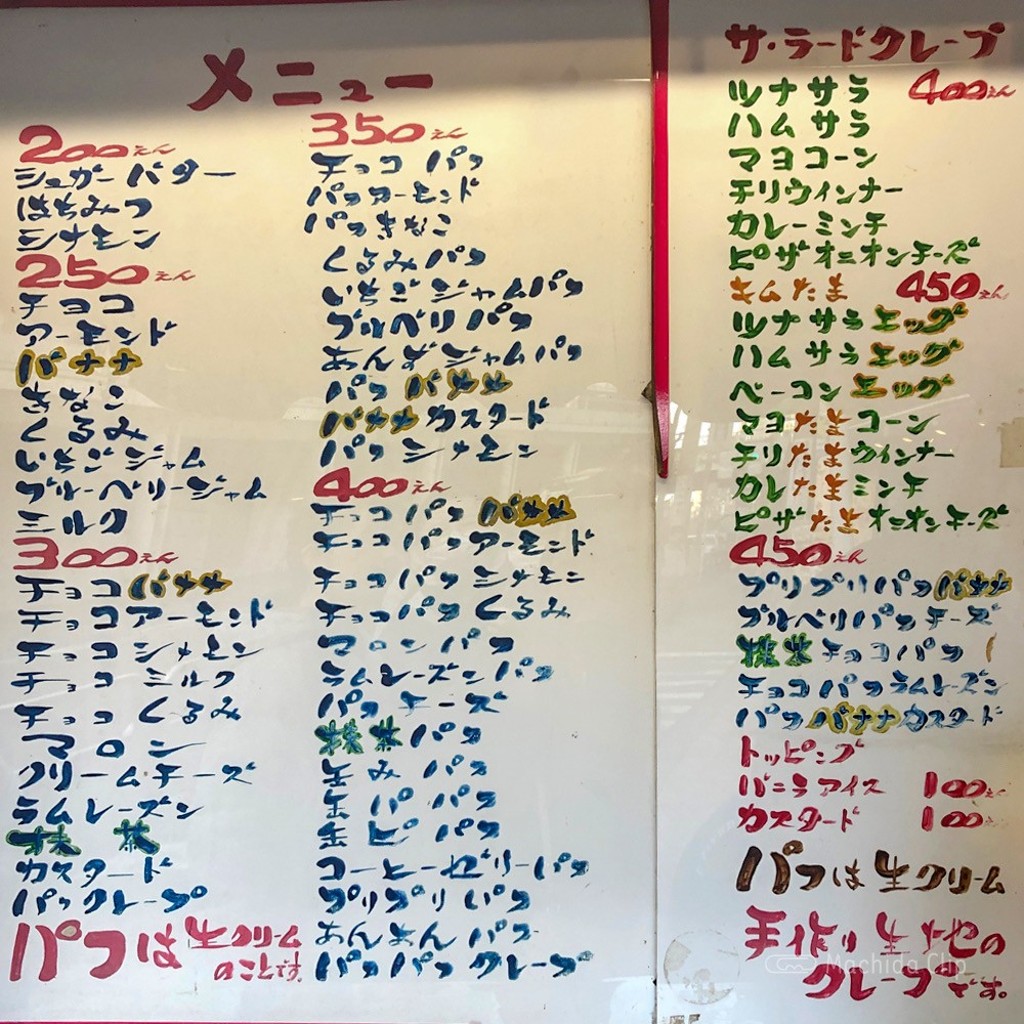 メニュー
200えん
シュガーバター
はちみつ
シナモン
250えん
チョコ
アーモンド
バナナ
きなこ
くるみ
いちごジャム
ブルーベリージャム
ミルク
300えん
チョコバナナ
チョコアーモンド
チョコシナモン
チョコミルク
チョコくるみ
マロン
クリームチーズ
ラムレーズン
抹茶
カスタード
パフクレープ
パフは生クリーム
のことです。
350えん
チョコパフ
パフアーモンド
パフきなこ
くるみパフ
いちごジャムパフ
ブルベリパフ
あんずジャムパフ
パフバナナ
バナナカスタード
パフシナモン
400えん
チョコパフバナナ
チョコパフアーモンド
チョコパフシナモン
チョコパフくるみ
マロンパフ
ラムレーズンパフ
パフチーズ
抹茶パフ
缶みパフ
缶パパフ
缶ピパフ
コーヒーゼリーパフ
プリプリパフ
あんあんパフ
パフパフクレープ
サ・ラードクレープ
ツナサラ 400えん
ハムサラ
マヨコーン
チリウィンナー
カレーミンチ
ピザオニオンチーズ
キムたま 450えん
ツナサラエッグ
ハムサラエッグ
ベーコンエッグ
マヨたまコーン
チリたまウィンナー
カレたまミンチ
ピザたまオニオンチーズ
450えん
プリプリパフバナナ
ブルベリパフチーズ
抹茶チョコパフ
チョコパフラムレーズン
パフバナナカスタード
トッピング
バニラアイス 100えん
カスタード 100えん
パフは生クリーム
手作り生地の
クレープです。
Machida Clip